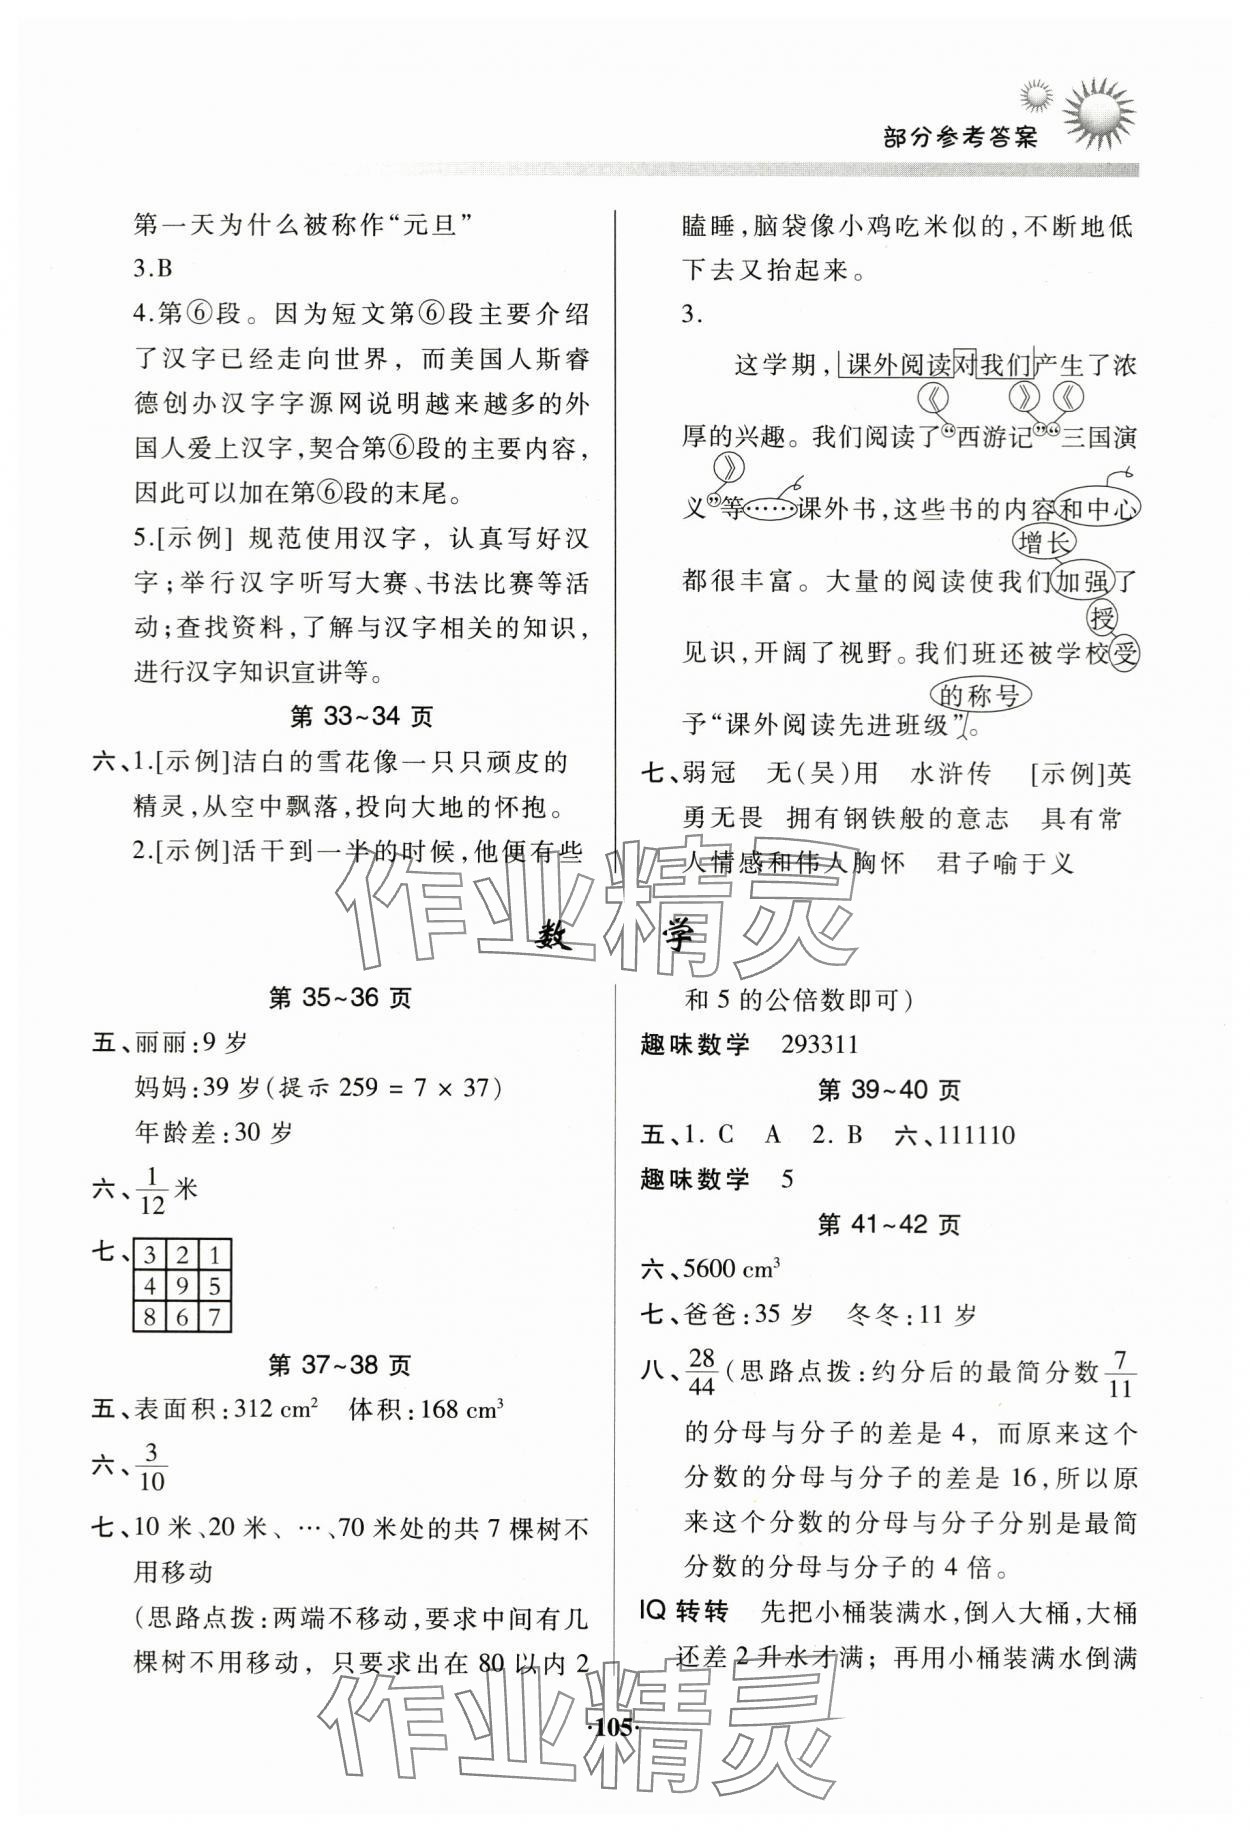 部分参考答案
第一天为什么被称作“元旦”
3.B
4.第⑥段。因为短文第⑥段主要介绍
了汉字已经走向世界，而美国人斯睿
德创办汉字字源网说明越来越多的外
国人爱上汉字,契合第⑥段的主要内容,
因此可以加在第⑥段的末尾。
5.[示例] 规范使用汉字，认真写好汉
字;举行汉字听写大赛、书法比赛等活
动;查找资料,了解与汉字相关的知识,
进行汉字知识宣讲等。
第 33~34 页
六、1.[示例]洁白的雪花像一只只顽皮的
精灵,从空中飘落,投向大地的怀抱。
2.[示例]活干到一半的时候,他便有些
瞌睡,脑袋像小鸡吃米似的,不断地低
下去又抬起来。
3.
这学期,课外阅读对我们产生了浓
《 》 《
厚的兴趣。我们阅读了“西游记”“三国演
》
义”等……课外书,这些书的内容和中心
增长
都很丰富。大量的阅读使我们加强了
授
见识,开阔了视野。我们班还被学校受
的称号
予“课外阅读先进班级”。
七、弱冠 无(吴)用 水浒传 [示例]英
勇无畏 拥有钢铁般的意志 具有常
人情感和伟人胸怀 君子喻于义
数 学
第 35~36 页
五、丽丽:9 岁
妈妈:39 岁(提示 259 = 7 × 37)
年龄差:30 岁
六、1/12米
七、3 2 1
4 9 5
8 6 7
第 37~38 页
五、表面积:312 cm² 体积:168 cm³
六、3/10
七、10 米、20 米、…、70 米处的共 7 棵树不
用移动
(思路点拨:两端不移动,要求中间有几
棵树不用移动，只要求出在 80 以内 2
和 5 的公倍数即可)
趣味数学 293311
第 39~40 页
五、1. C A 2. B 六、111110
趣味数学 5
第 41~42 页
六、5600 cm³
七、爸爸:35 岁 冬冬:11 岁
八、28/44(思路点拨:约分后的最简分数7/11
的分母与分子的差是 4，而原来这个
分数的分母与分子的差是 16,所以原
来这个分数的分母与分子分别是最简
分数的分母与分子的 4 倍。
IQ 转转 先把小桶装满水,倒入大桶,大桶
还差 2 升水才满；再用小桶装满水倒满
·105·
作业精灵
作业精灵